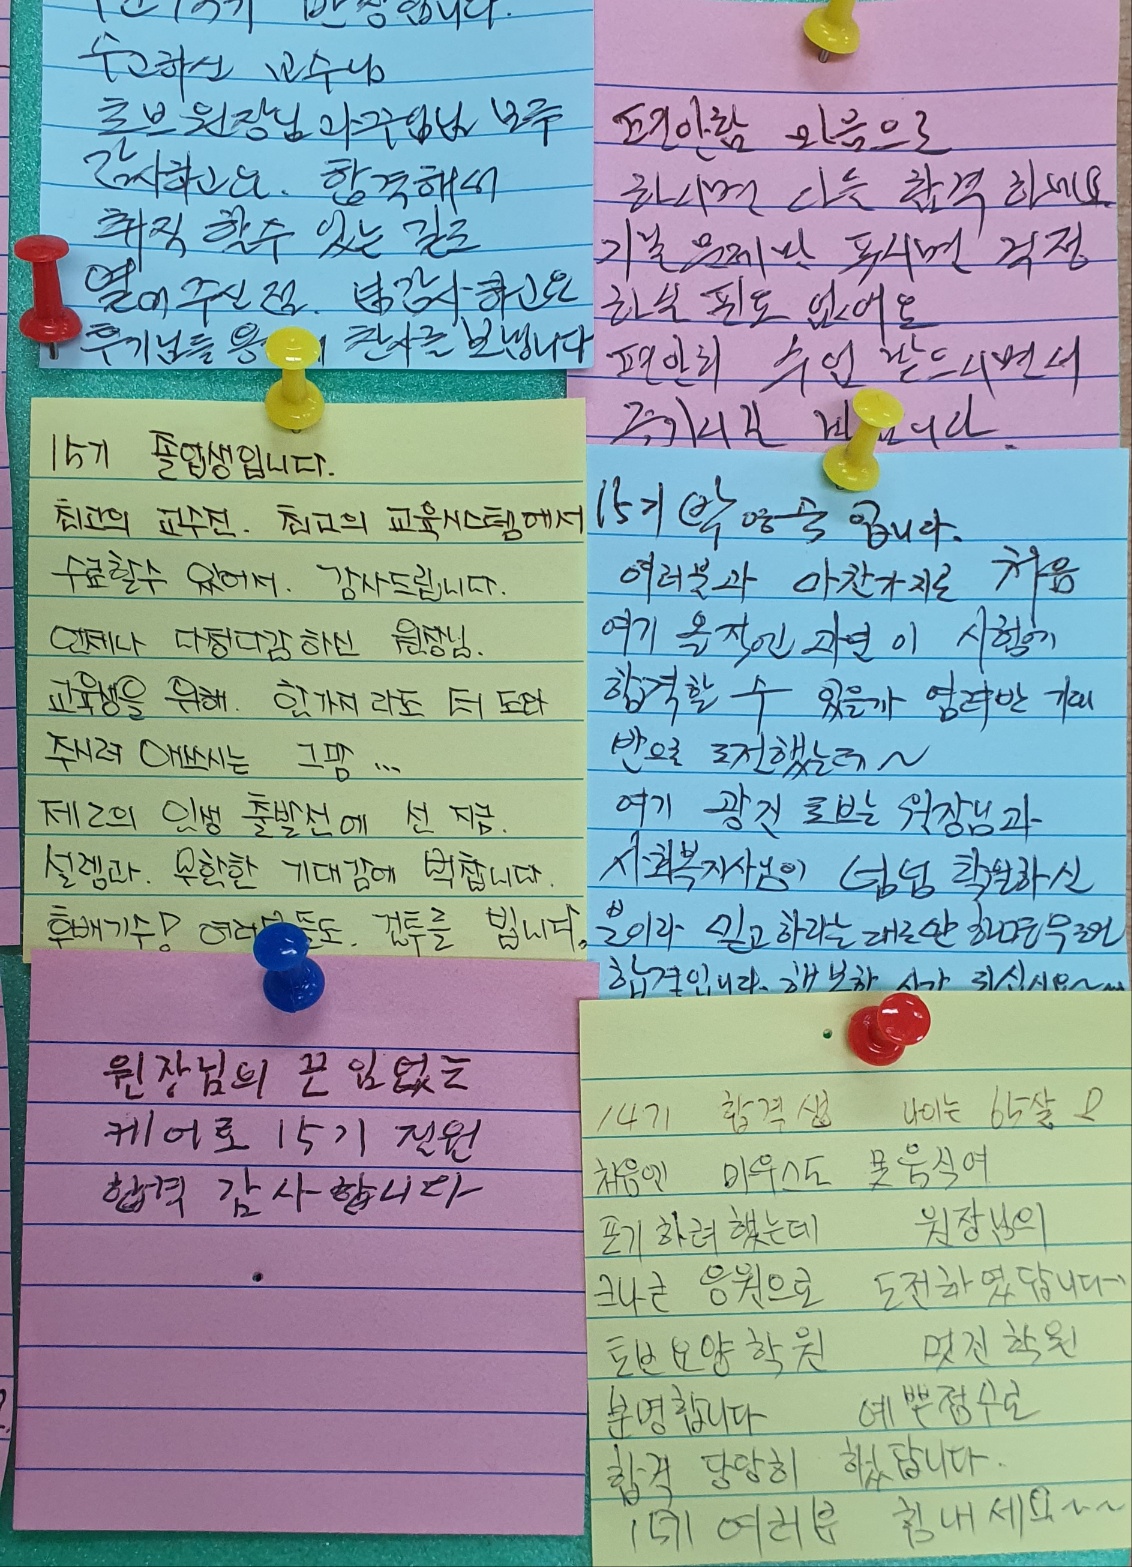 반장입니다.
수고하신 교수님
로브 원장님과 주임님 모두
감사하고요. 합격해서
취직 할수 있는 길로
열어주신점. 넘감사하고요
후기님들 찬사를 보냅니다
편안함 마음으로
하시면 다는 합격 하세요
기출 문제만 푸시면 걱정
하실 필도 없어요
편안히 수업 받드시면서
즐기시길 바랍니다.
15기 졸업생입니다.
최고의 교수진. 최고의 교육시스템에서
수료할수 있어서. 감사드립니다.
언제나 다정다감하신 원장님.
교육생을 위해. 한가지라도 더 도와
주시려 애쓰시는 그맘...
제2의 인생 출발선에 선 지금.
설렘과. 무한한 기대감에 벅찹니다.
후배기수! 건투를 빕니다.
15기 박영옥 입니다.
여러분과 마찬가지로 처음
여기 옥자인 과연 이 시험에
합격할 수 있을까 염려반 기대
반으로 도전했는데~
여기 광진 로브는 원장님과
사회복지사님이 넘넘 탁월하신
분이라 믿고 하라는대로만 하면 무조건
합격입니다. 행복한 시간 되십시요~~
원장님의 끈임없는
케어로 15기 전원
합격 감사합니다
14기 합격생 나이는 65살요
처음엔 마우스도 못움직여
포기 하려했는데 원장님의
크나큰 응원으로 도전하였답니다~
로브요양학원 멋진학원
분명합니다 예쁜점수로
합격 당당히 했답니다.
15기 여러분 힘내세요~~